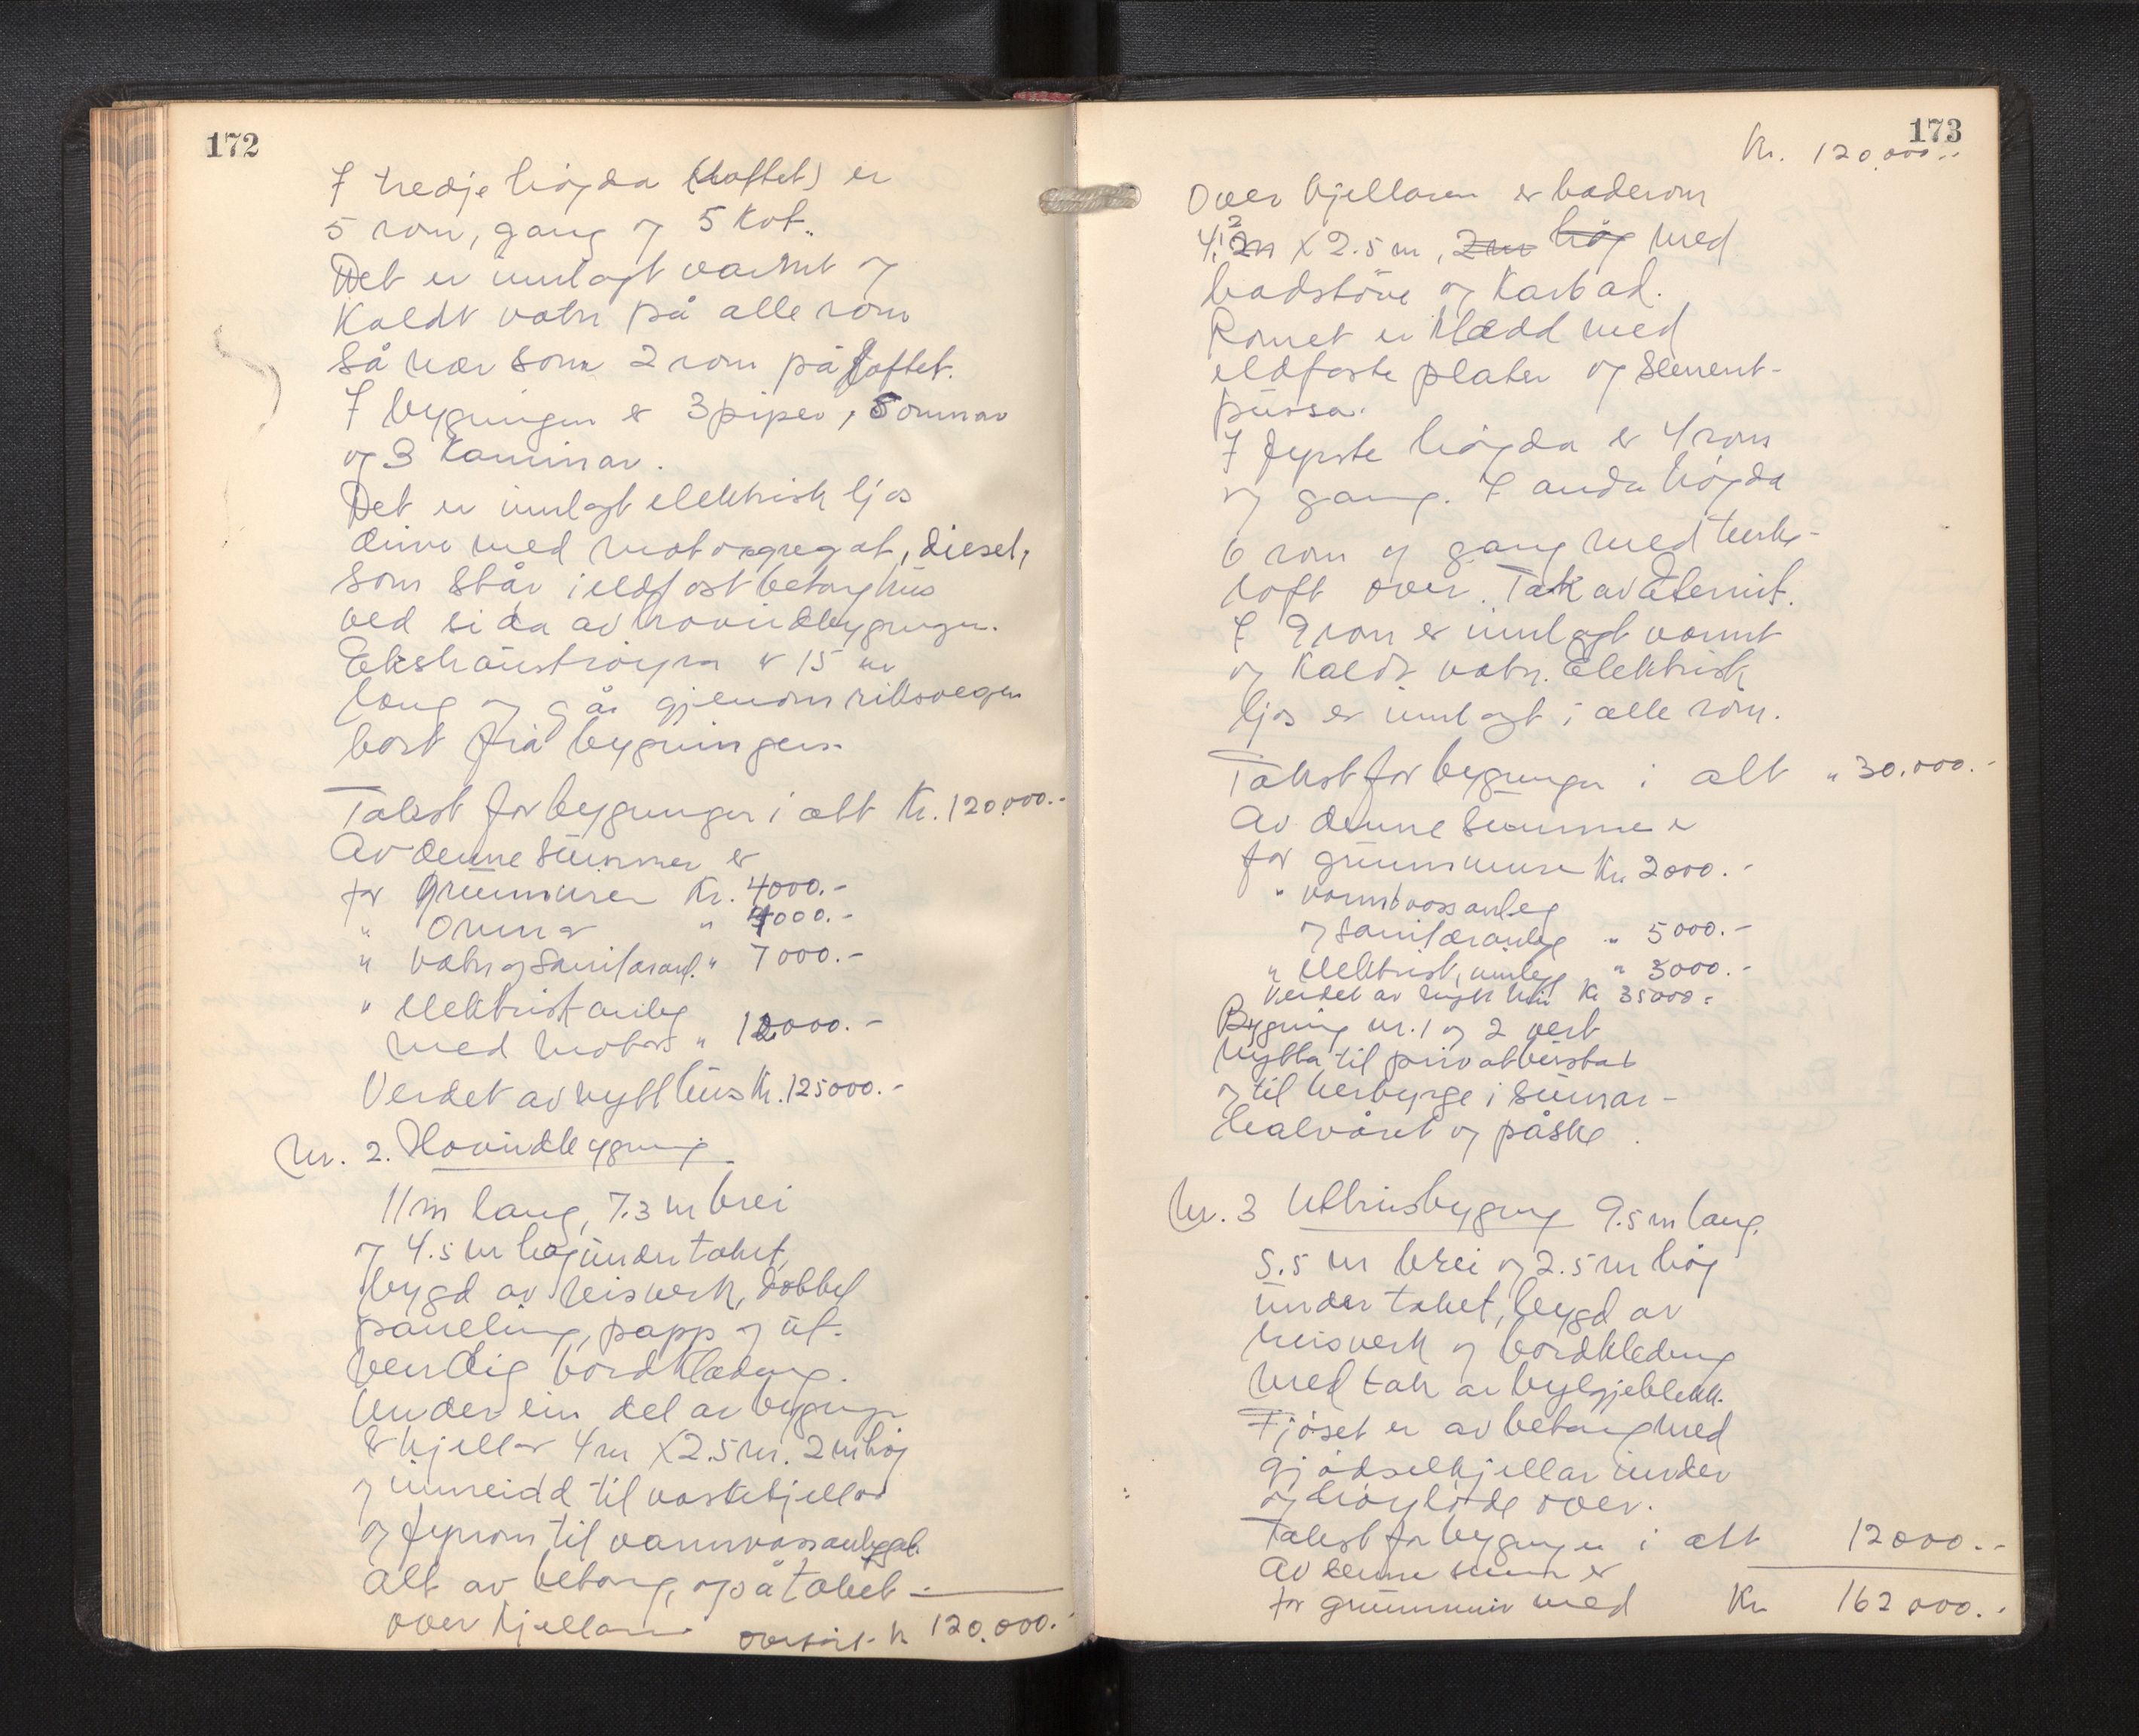 172
I tredje högda (loftet) er
5 rom, gang og 5 kot.
Det er innlagt varmt og
kaldt vatn på alle rom
så nær som 2 rom på loftet.
I bygningen er 3 piper, 5 omnar
og 3 kaminar.
Det er innlagt elektrisk ljos
drive med motoragregat, diesel,
som står i eldfast betonghus
ved sida av hovudbygningen.
Ekshauströyra er 15 m
lang og går gjenom riksvegen
bort frå bygningen.
Takst for bygningen i alt Kr. 120.000.-
Av denne summen er
for grunnmuren Kr. 4000.-
" Omnar " 4000.-
" vatn og sanitæranl. " 7000.-
" elektrisk anleg
med motor " 12000.-
Verdet av nytt hus Kr. 125000.-
Nr. 2. Hovudbygning
11 m lang, 7.3 m brei
og 4.5 m høg under taket,
bygd av reisverk, dobbel
paneling, papp og ut-
vendig bordklædning.
Under ein del av bygningen
er kjellar 4 m x 2.5 m. 2 m høg
og innreidd til vaskekjellar
og fyrrom til varmvassanlegget.
Alt av betong, også taket
over kjellaren
overført kr 120.000.-
173
Kr. 120.000.-
Over kjellaren er baderom
4.2 x 2.5 m, 2 m høg med
badstove og karbad.
Romet er klædd med
eldfaste plater og sement-
pussa.
I fyrste högda er 4 rom
og gang. I andre högda
6 rom og gang med turke-
loft over. Tak av Eternit.
I 9 rom er innlagt varmt
og kaldt vatn. Elektrisk
ljos er innlagt i alle rom.
Takst for bygningen i alt " 30.000.-
Av denne summen er
for grunnmuren Kr. 2000.-
" varmtvassanleg
og sanitæranleg " 5000.-
" elektrisk innlegg " 3000.-
Verdet av nytt hus Kr 35000.-
Bygning nr. 1 og 2 vert
nytta til privatbustad
og til herbyrge i sumar-
halvåret og påske.
Nr. 3 Uthusbygning 9.5 m lang,
5.5 m brei og 2.5 m høg
under taket, bygd av
reisverk og bordkledning
med tak av bylgjeblekk.
Fjöset er av betong med
gjødselkjellar under
og høylöde over.
Takst for bygningen i alt 12000.-
Av denne summen er
for grunnmur med Kr 162000.-